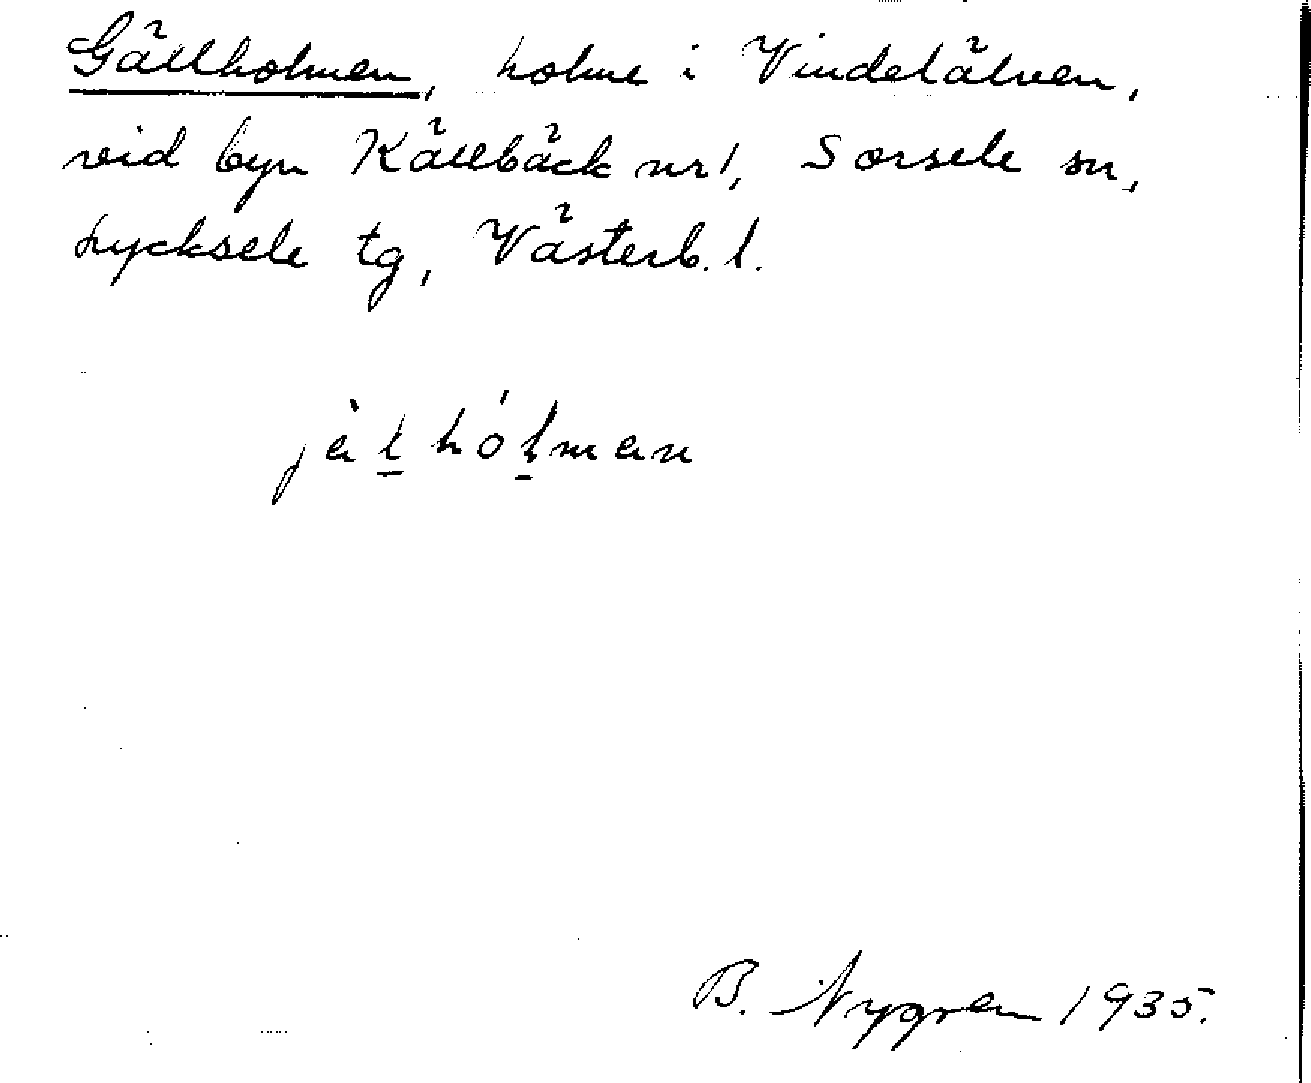 Gällholmen, holme i Vindelälven,
vid byn Källbäck nr 1, Sorsele sn,
Lycksele tg, Västerb. l.
jèl̲ hól̲men
B. Nygren 1935.